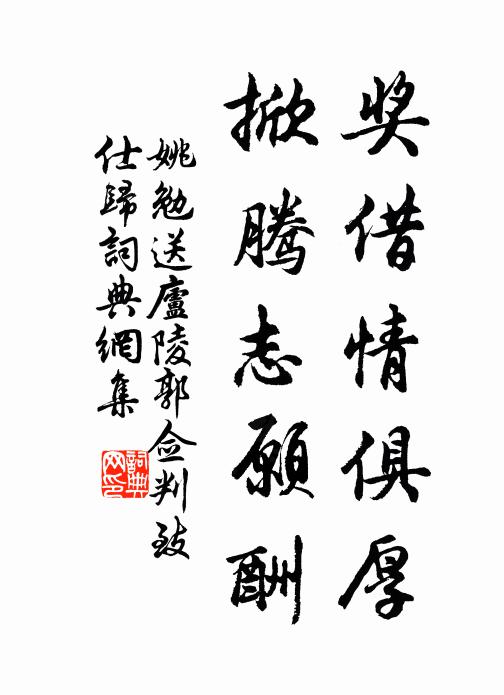 奖借情俱厚
掀腾志愿酬
姚勉送廬陵郭僉判致
仕歸詞典網集
詞典网印